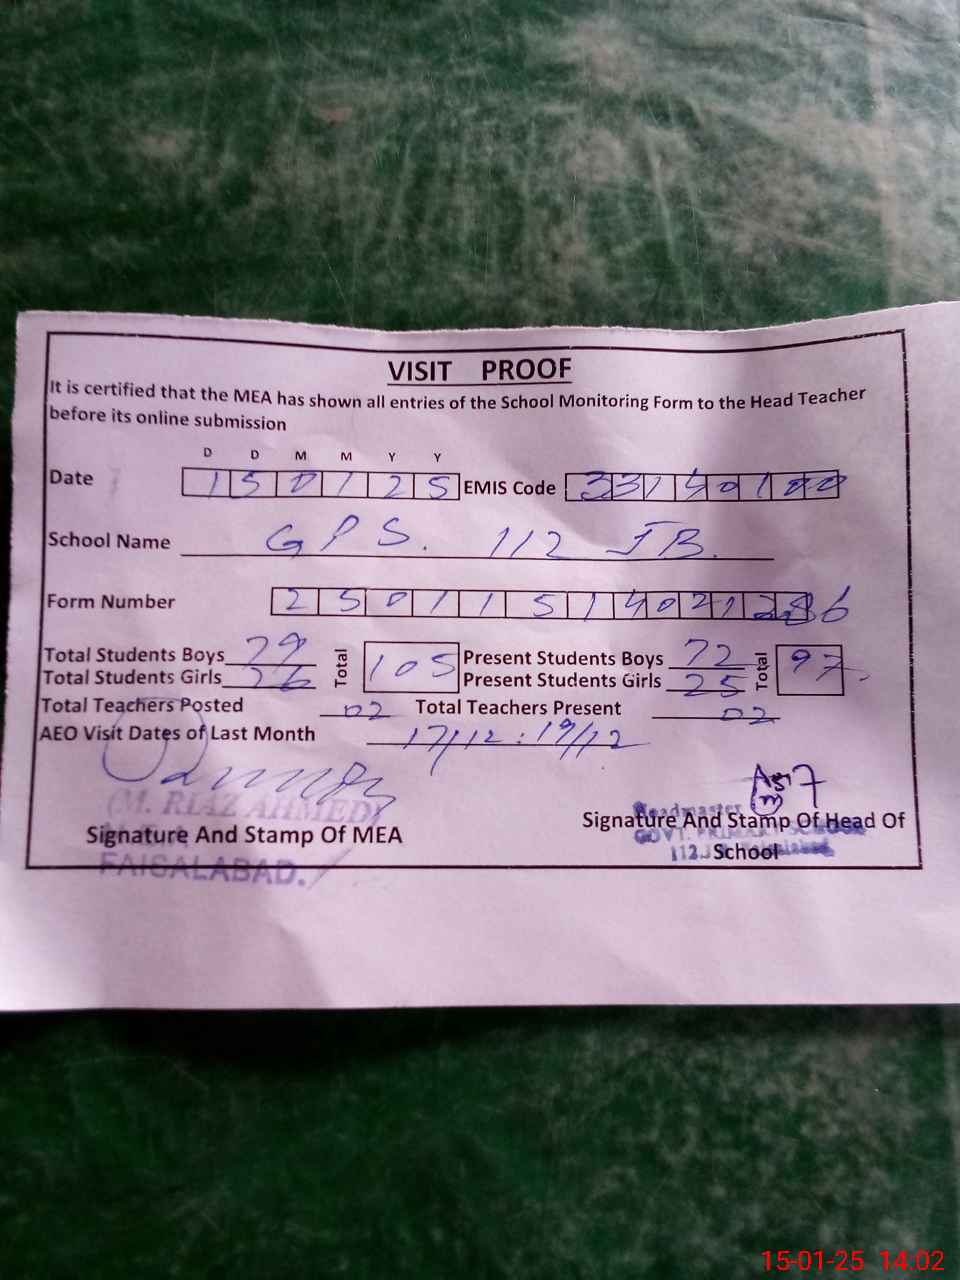 VISIT PROOF
It is certified that the MEA has shown all entries of the School Monitoring Form to the Head Teacher
before its online submission
D D M M Y Y
Date 1 5 0 1 2 5 EMIS Code
School Name GPS. 112 JB.
Form Number
Total Students Boys 79 Total 105 Present Students Boys 72 Total 97
Total Students Girls 26 Present Students Girls 25
Total Teachers Posted 02 Total Teachers Present 02
AEO Visit Dates of Last Month 17/12 : 19/12
(M. RIAZ AHMED)
Headmaster
Signature And Stamp Of MEA Signature And Stamp Of Head Of
GOVT. PRIMARY SCHOOL
School
112
FAISALABAD.
15-01-25 14:02